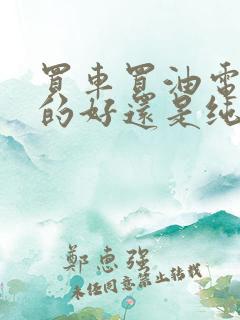 買車買油電
的好還是純
鄭惠強
未經同意禁止轉載